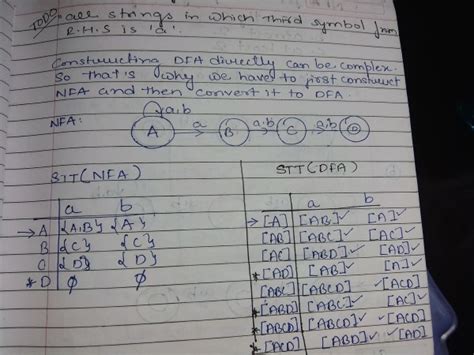 TODO: all strings in which Third symbol from
R.H.S is 'a'.
Constructing DFA directly can be complex.
So that's why we have to first construct
NFA and then convert it to DFA.
NFA: A a,b a B a,b C a,b D
STT(NFA) STT(DFA)
a b a b
→ A {A,B} {A} → [A] [AB]✓ [A]✓
B {C} {C} [AB] [ABC]✓ [AC]✓
C {D} {D} [AC] [ABD]✓ [AD]✓
*D ϕ ϕ *[AD] [AB]✓ [A]✓
[ABC] [ABCD]✓ ✓[ACD]✓
*[ABD] [ABC]✓ [AC]✓
*[ABCD] [ABCD]✓ ✓[ACD]✓
*[ACD] [ABD]✓ [AD]✓